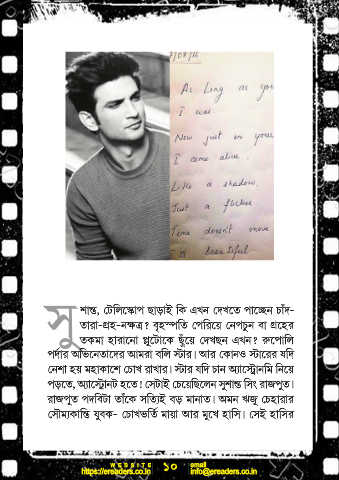 2/08/16
As Long as you
I was.
Now just in your
I come alive.
Like a shadow,
Just a flicker
Time doesn't move
is beautiful -
সুশান্ত, টেলিস্কোপ ছাড়াই কি এখন দেখতে পাচ্ছেন চাঁদ-
তারা-গ্রহ-নক্ষত্র? বৃহস্পতি পেরিয়ে নেপচুন বা গ্রহের
তকমা হারানো প্লুটোকে ছুঁয়ে দেখছন এখন? রুপোলি
পর্দার অভিনেতাদের আমরা বলি স্টার। আর কোনও স্টারের যদি
নেশা হয় মহাকাশে চোখ রাখার। স্টার যদি চান অ্যাস্ট্রোনমি নিয়ে
পড়তে, অ্যাস্ট্রোনট হতে! সেটাই চেয়েছিলেন সুশান্ত সিং রাজপুত।
রাজপুত পদবিটা তাঁকে সত্যিই বড় মানাত। অমন ঋজু চেহারার
সৌম্যকান্তি যুবক- চোখভর্তি মায়া আর মুখে হাসি। সেই হাসির
WEBSITE
https://ereaders.co.in
১০
email
info@ereaders.co.in